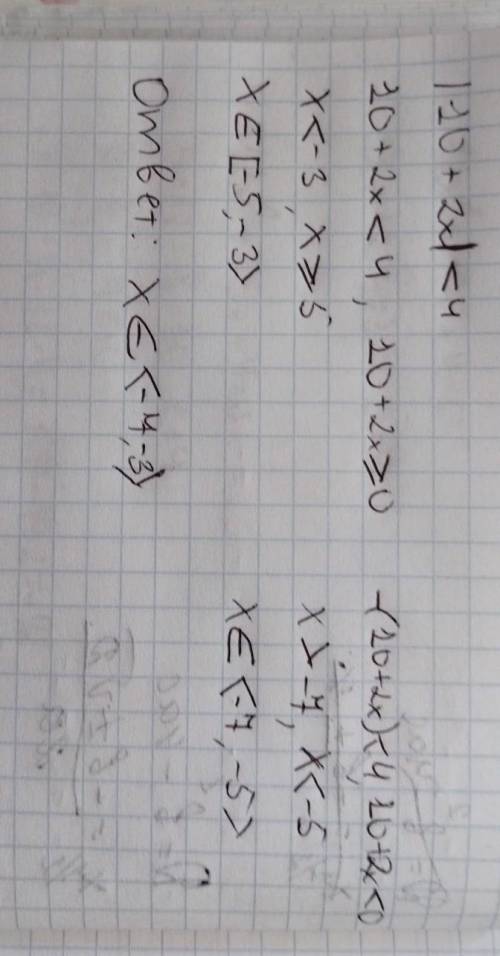 |10 + 2x| < 4
10 + 2x < 4 , 10 + 2x ⩾ 0
-(10+2x) < 4, 10+2x<0
x < -3 , x ⩾ 5
x > -7, x < -5
x ∈ [-5, -3⟩
x ∈ ⟨-7, -5⟩
Ответ: x ∈ ⟨-7, -3⟩